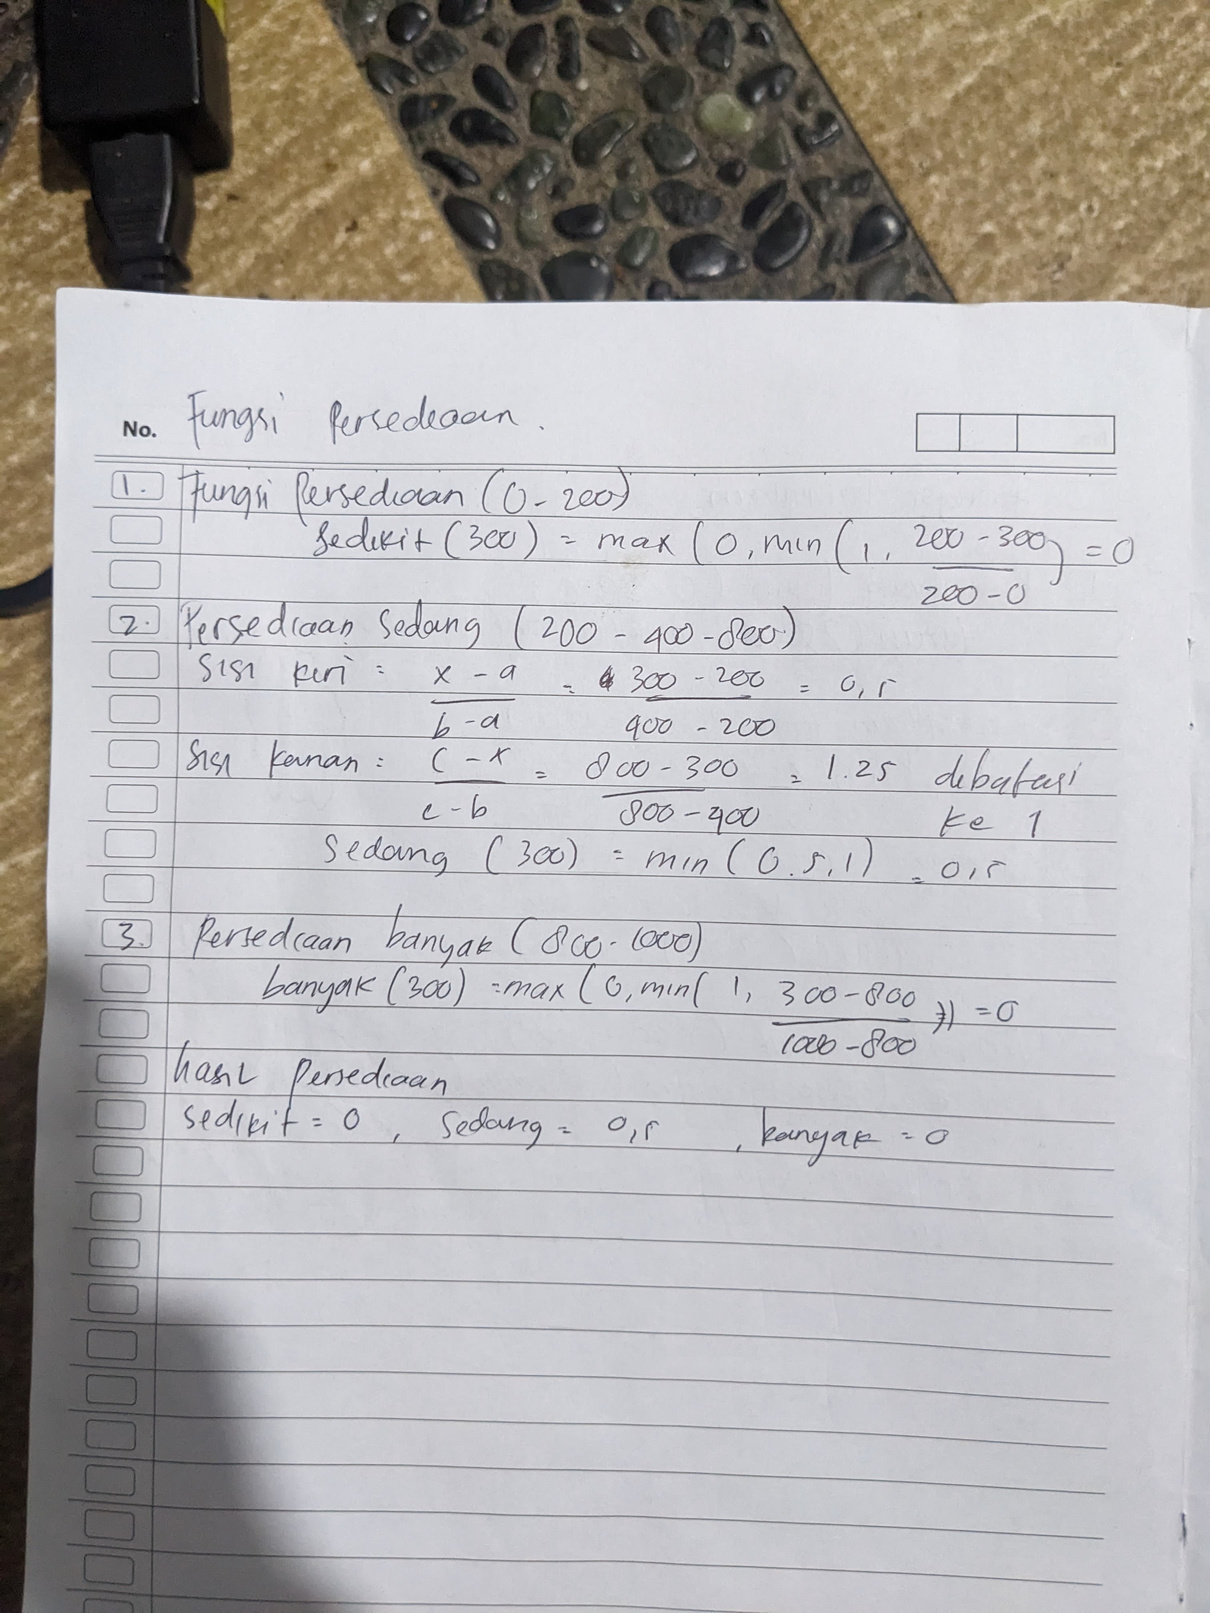 No. Fungsi Persediaan.
1. Fungsi Persediaan (0-200)
Sedikit (300) = max (0, min (1, 200-300 / 200-0) = 0
2. Persediaan Sedang (200 - 400 - 800)
Sisi kiri : x - a / b - a = 300 - 200 / 400 - 200 = 0,5
Sisi kanan : c - x / c - b = 800 - 300 / 800 - 400 = 1.25 dibatasi
ke 1
Sedang (300) = min (0.5, 1) = 0,5
3. Persediaan banyak (800-1000)
banyak (300) = max (0, min( 1, 300-800 / 1000-800 )) = 0
hasil Persediaan
sedikit = 0 , sedang = 0,5 , banyak = 0